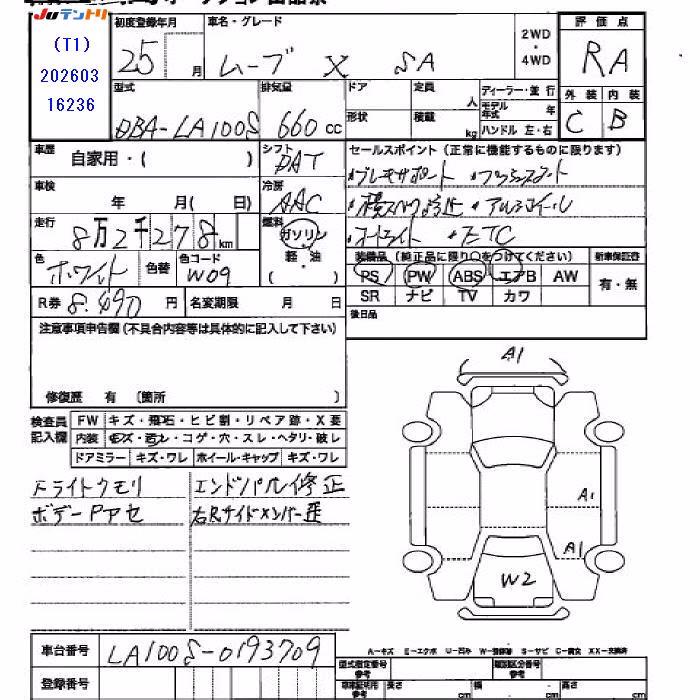 JUテントリ
(T1)
202603
16236
初度登録年月 車名・グレード 評価点
25 月 ムーブ X SA 2WD・4WD RA
型式 排気量 ドア 定員 人 ディーラー・並行 外装 内装
DBA-LA100S 660 cc 形状 積載 kg モデル年式 年 ハンドル 左・右 C B
車歴 自家用・( ) シフト DAT セールスポイント(正常に機能するものに限ります)
車検 年 月( 日) 冷房 AAC
走行 8万2千278km 燃料 ガソリン・軽・油 ( )
・オートライト ・ETC
色 ホワイト 色替 色コード W09
装備品(純正品に限り○をつけてください) 新車保証書
PS PW ABS エアB AW 有・無
SR ナビ TV カワ
R券 8,490 円 名変期限 月 日 後日品
注意事項申告欄(不具合内容等は具体的に記入して下さい)
修復歴 有 〔箇所 〕
検査員記入欄 FW キズ・飛石・ヒビ割・リペア跡・X要
内装 キズ・コゲ・穴・スレ・ヘタリ・破レ
ドアミラー キズ・ワレ ホイール・キャップ キズ・ワレ
Fライトクモリ エンドパネル修正
ボデーPアセ 右Rサイドメンバー歪
A1
A1
A1
W2
車台番号 LA100S-0193709
登録番号
A-キズ E-エクボ U-凹み S-サビ
型式指定番号参考 類別区分番号参考
長さ cm 幅 cm 高さ cm